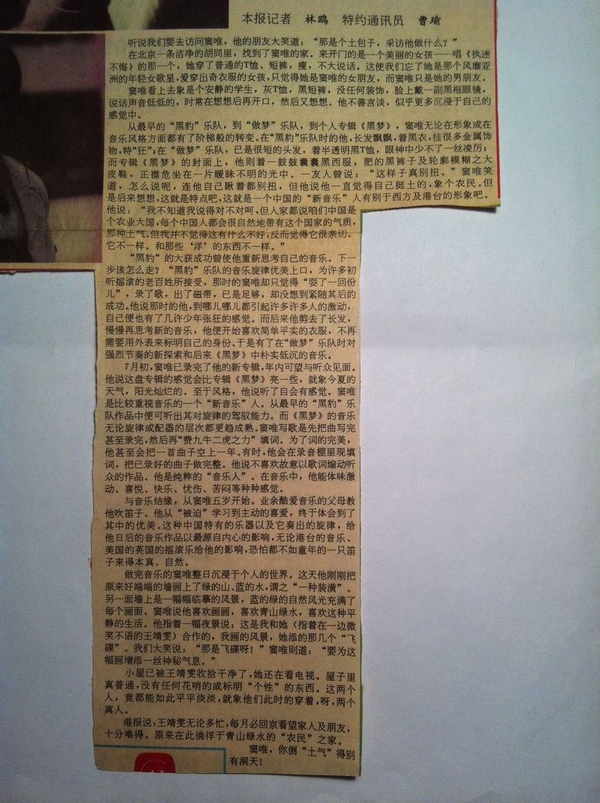 本报记者 林鸥 特约通讯员 曹瑜
听说我们要去访问窦唯，他的朋友大笑道：“那是个土包子，采访他做什么？”
在北京一条洁净的胡同里，找到了窦唯的家。来开门的是一个美丽的女孩——唱《执迷
不悔》的那一个。她穿了普通的T恤，短裤，瘦，不大说话。这使我们忘了她是那个风靡亚
洲的年轻女歌星，爱穿出奇衣服的女孩，只觉得她是窦唯的女朋友，而窦唯只是她的男朋友。
窦唯看上去象是个安静的学生，灰T恤，黑短裤，没任何装饰，脸上戴一副黑框眼镜，
说话声音低低的，时常在想想后再开口，然后又想想。他不善言谈，似乎更多沉浸于自己的
感觉中。
从最早的“黑豹”乐队，到“做梦”乐队，到个人专辑《黑梦》，窦唯无论在形象或在
音乐风格方面都有了阶梯般的转变。在“黑豹”乐队时的他，长发飘飘，着黑衣，挂很多金属饰
物，特“狂”；在“做梦”乐队，已是很短的头发，着半透明黑T恤，眼神中少不了一丝凌厉；
而专辑《黑梦》的封面上，他则着一鼓鼓囊囊黑西服，肥的黑裤子及轮廓模糊之大
皮鞋，正襟危坐在一片暧昧不明的光中。一友人曾说：“这样子真别扭。”窦唯笑
道，怎么说呢，连他自己瞅着都别扭，但他说他一直觉得自己挺土的，象个农民。但
是后来想想，这就是特点吧，这就是一个中国的“新音乐”人有别于西方及港台的形象吧。
他说：“我不知道我说得对不对呵，但人家都说咱们中国是
个农业大国，每个中国人都会很自然地带有这个国家的气质，
那种土气。但我并不觉得这有什么不好，反而觉得它很亲切。
它不一样。和那些‘洋’的东西不一样。”
“黑豹”的大获成功曾使他重新思考自己的音乐。下一
步该怎么走？“黑豹”乐队的音乐旋律优美上口，为许多初
听摇滚的老百姓所接受，那时的窦唯却只觉得“耍了一回份
儿”，录了歌，出了磁带，已是足够，却没想到紧随其后的
成功。他说那时的他，到哪儿哪儿都引起许许多多人的激动，
自己便也有了几许少年张狂的感觉。而后来他剪去了长发，
慢慢再思考新的音乐，他便开始喜欢简单平实的衣服，不再
需要用外表来标明自己的身份。于是有了在“做梦”乐队时对
强烈节奏的新探索和后来《黑梦》中朴实低沉的音乐。
7月初，窦唯已录完了他的新专辑，年内可望与听众见面。
他说这盘专辑的感觉会比专辑《黑梦》亮一些，就象今夏的
天气，阳光灿烂的。至于风格，他说听了自会有感觉。窦唯
是比较重视音乐的一个“新音乐”人。从最早的“黑豹”乐
队作品中便可听出其对旋律的驾驭能力。而《黑梦》的音乐
无论旋律或配器的层次都更趋成熟。窦唯写歌是先把曲写完
甚至录完，然后再“费九牛二虎之力”填词。为了词的完美，
他甚至会把一首曲子空上一年。有时，他会在录音棚里现填
词，把已录好的曲子做完整。他说不喜欢故意以歌词煽动听
众的作品。他是纯粹的“音乐人”。在音乐中，他能体味激
动、喜悦、快乐、忧伤、苦闷等种种感觉。
与音乐结缘，从窦唯五岁开始。业余酷爱音乐的父母教
他吹笛子。他从“被迫”学习到主动的喜爱，终于体会到了
其中的优美。这种中国特有的乐器以及它奏出的旋律，给
他日后的音乐作品以最源自内心的影响，无论港台的音乐、
美国的英国的摇滚乐给他的影响，恐怕都不如童年的一只笛
子来得本真、自然。
做完音乐的窦唯整日沉浸于个人的世界。这天他刚刚把
原来好端端的墙画上了绿的山、蓝的水，谓之“一种装潢”。
另一面墙上是一幅幅临摹的风景，蓝的绿的自然风光充满了
每个画面。窦唯说他喜欢画画，喜欢青山绿水，喜欢这种平
静的生活。他指着一幅夜景说：这是我和她（指着在一边微
笑不语的王靖雯）合作的，我画的风景，她添的那几个“飞
碟”。我们大笑说：“那是飞碟呀！”窦唯则道：“要为这
幅画增添一丝神秘气息。”
小屋已被王靖雯收拾干净了，她还在看电视。屋子里
真普通，没有任何花哨的或标明“个性”的东西。这两个
人，竟都能如此平平淡淡，就象他们此时的穿着，呀，两个
真人。
港报说：王靖雯无论多忙，每月必回京看望家人及朋友，
十分难得。原来在此徜徉于青山绿水的“农民”之家。
窦唯，你倒“土气”得别
有洞天！